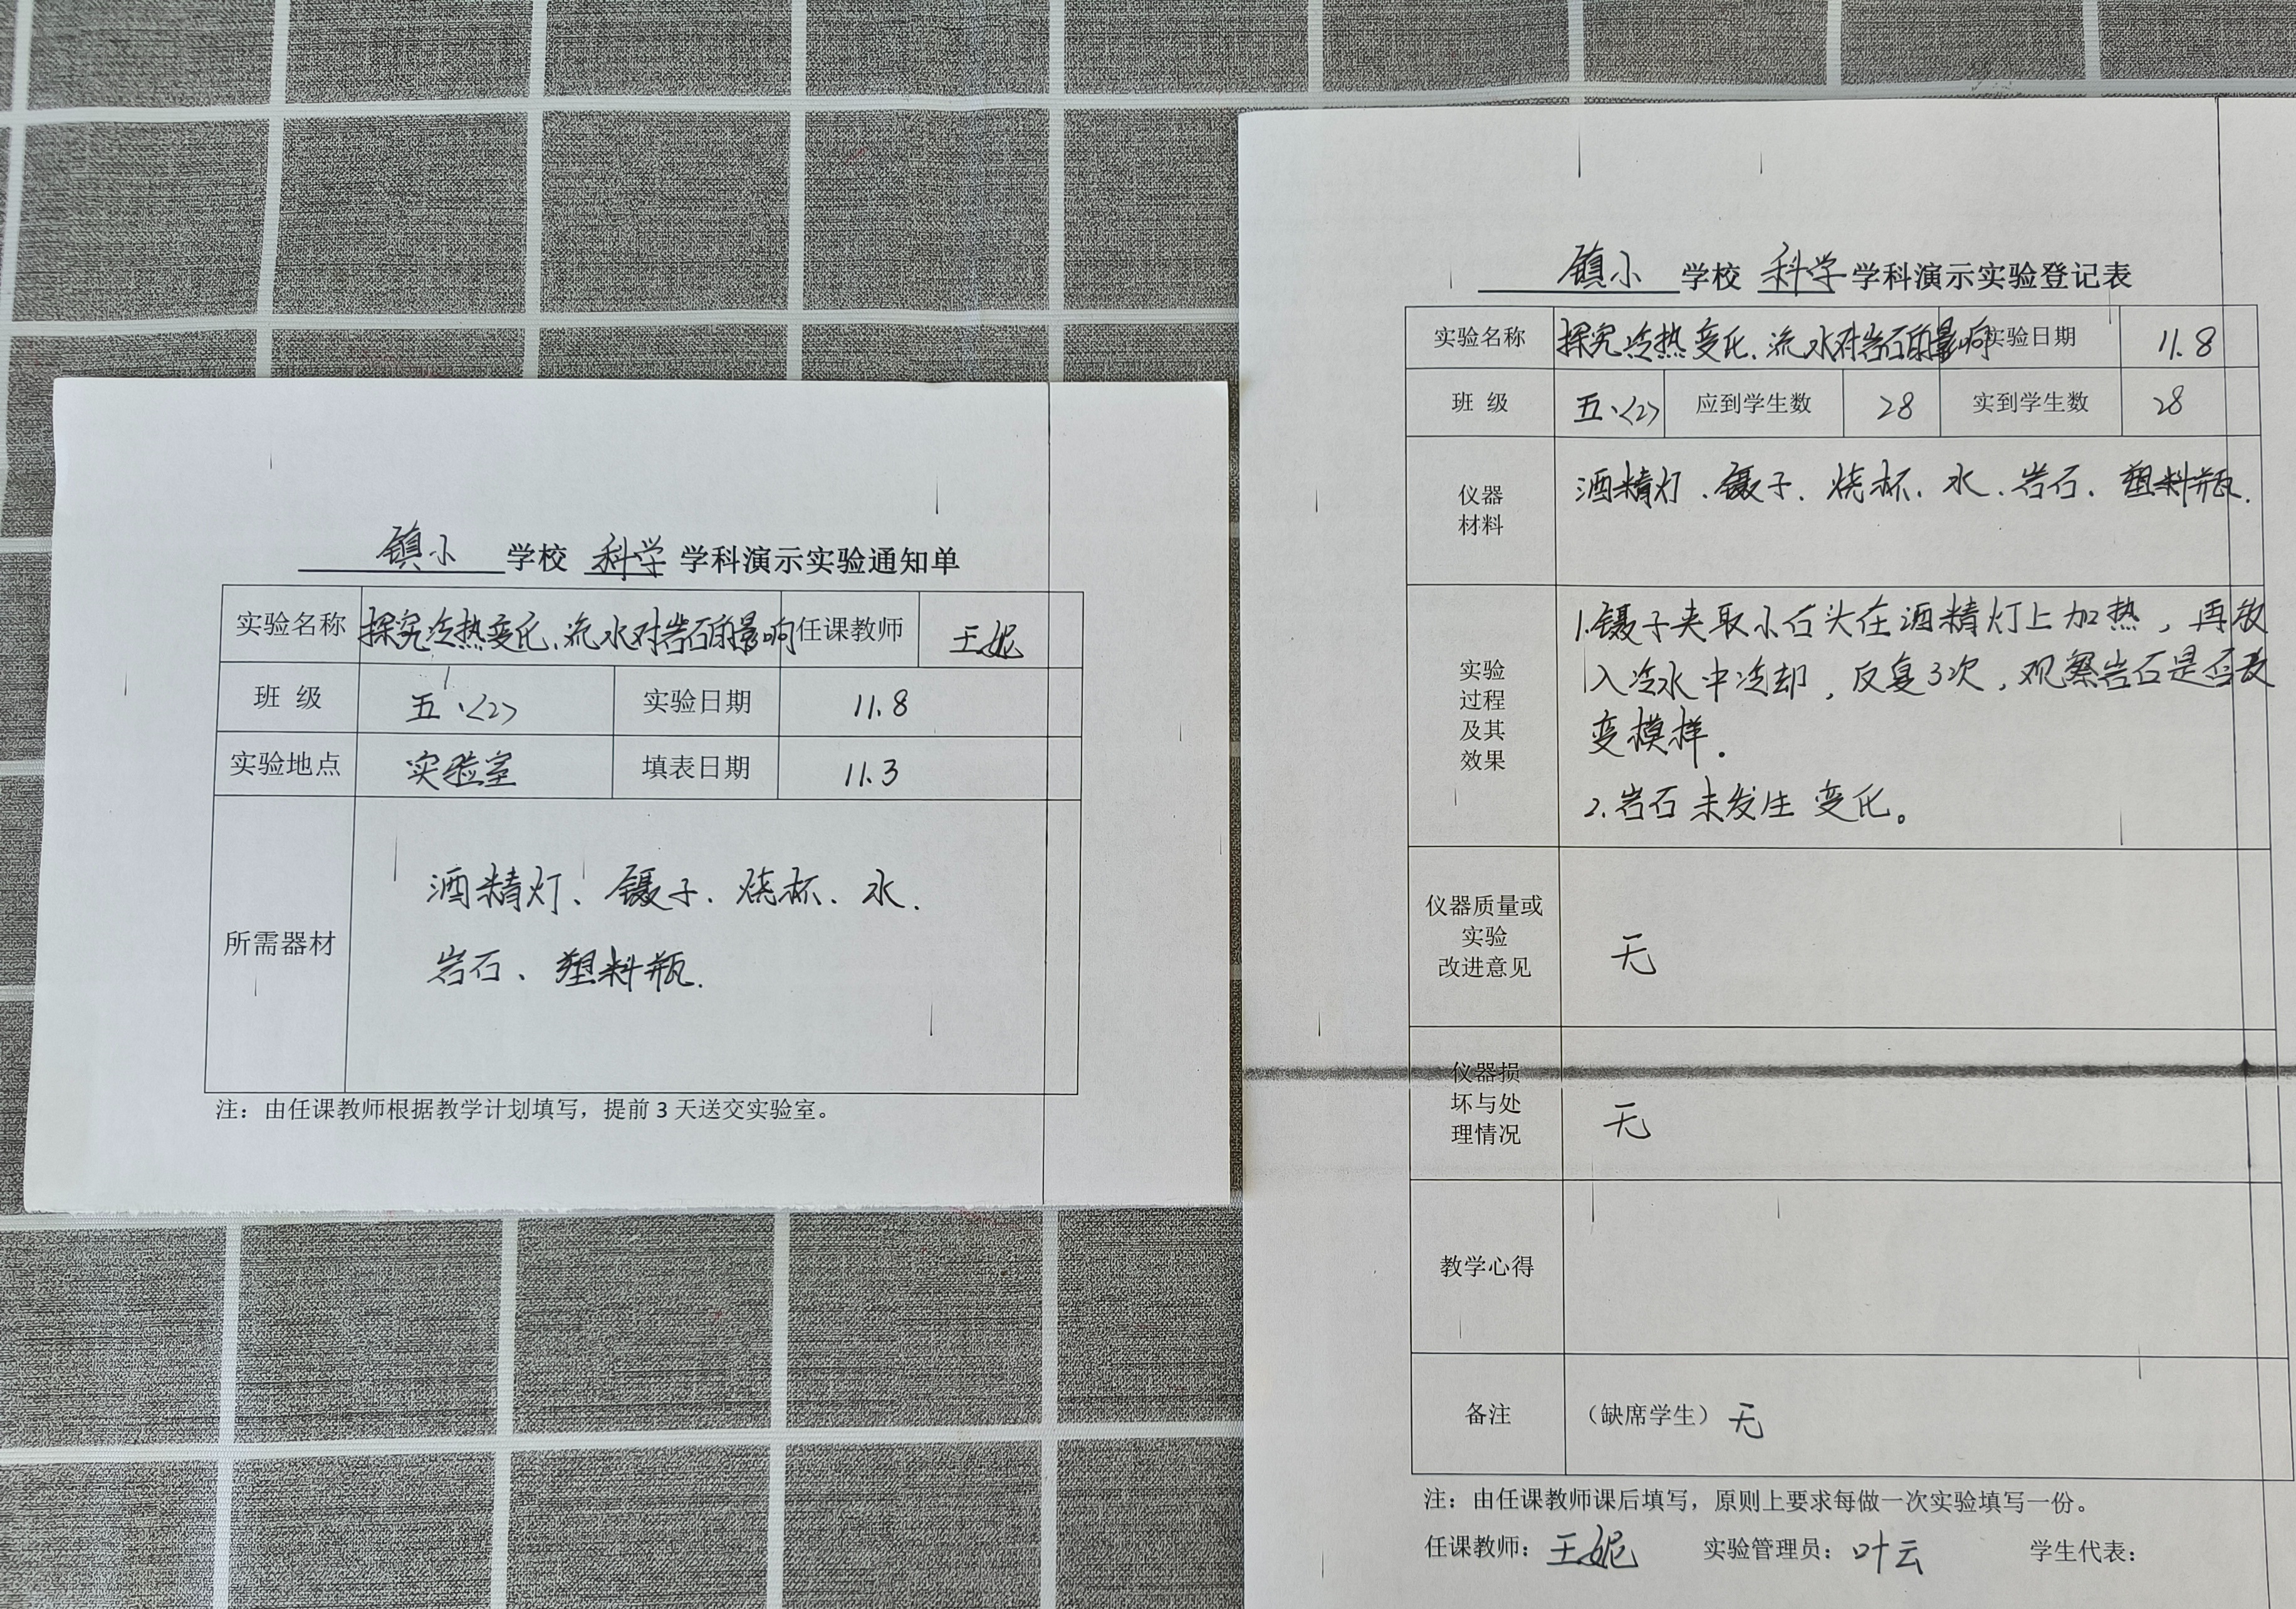 镇小 学校 科学 学科演示实验通知单
实验名称 探究冷热变化、流水对岩石的影响 任课教师 王妮
班 级 五.〈2〉 实验日期 11.8
实验地点 实验室 填表日期 11.3
所需器材
酒精灯、镊子、烧杯、水、
岩石、塑料瓶.
注：由任课教师根据教学计划填写，提前 3 天送交实验室。
镇小 学校 科学 学科演示实验登记表
实验名称 探究冷热变化、流水对岩石的影响 实验日期 11.8
班 级 五.〈2〉 应到学生数 28 实到学生数 28
仪器
材料
酒精灯、镊子、烧杯、水、岩石、塑料瓶.
实验
过程
及其
效果
1.镊子夹取小石头在酒精灯上加热，再放
入冷水中冷却，反复3次，观察岩石是否
变模样.
2.岩石未发生变化。
仪器质量或
实验
改进意见
无
仪器损
坏与处
理情况
无
教学心得
备注 （缺席学生）无
注：由任课教师课后填写，原则上要求每做一次实验填写一份。
任课教师：王妮 实验管理员：叶云 学生代表：